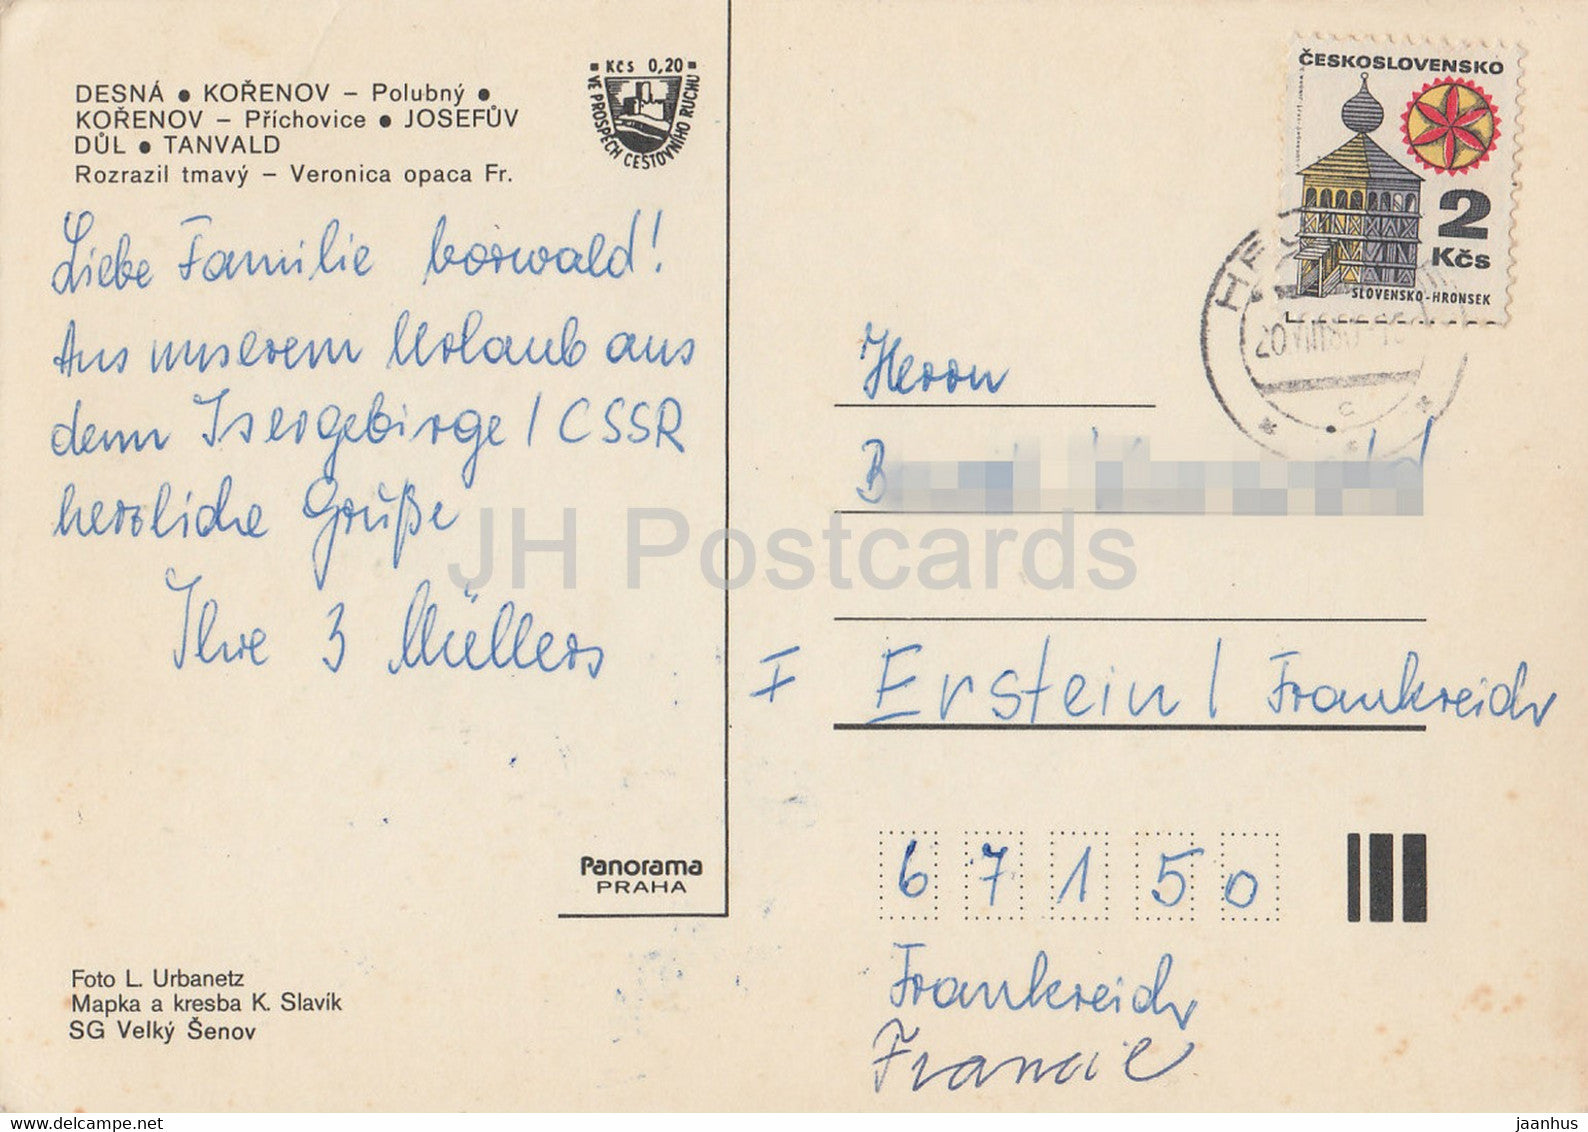 DESNÁ ● KOŘENOV – Polubný ●
KOŘENOV – Příchovice ● JOSEFŮV
DŮL ● TANVALD
Rozrazil tmavý – Veronica opaca Fr.
Kčs 0,20
VE PROSPĚCH CESTOVNÍHO RUCHU
Liebe Familie borwald!
Aus unserem Urlaub aus
dem Isergebirge / CSSR
herzliche Grüße
Ihre 3 Müllers
Panorama
PRAHA
Foto L. Urbanetz
Mapka a kresba K. Slavík
SG Velký Šenov
ČESKOSLOVENSKO
2
Kčs
SLOVENSKO-HRONSEK
Herrn
B
F Erstein / Frankreich
67150
Frankreich
Francie
JH Postcards
jaanhus